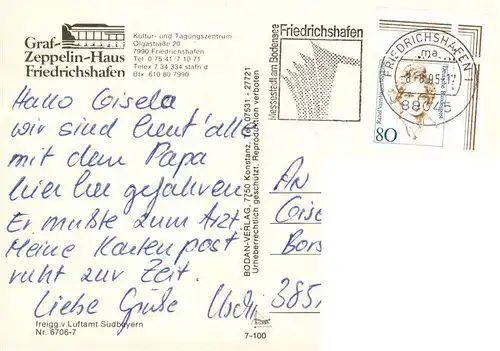 Graf-
Zeppelin-Haus
Friedrichshafen
Kultur- und Tagungszentrum
Olgastraße 20
7990 Friedrichshafen
Tel 0 75 41/7 10 71
Telex 7 34 334 stafn d
Btx 610 80 7990
Hallo Gisela
wir sind heut' alle
mit dem Papa
hier her gefahren
Er mußte zum Arzt.
Meine Kartenpost
ruht zur Zeit.
Liebe Grüße Uschi
freigg.v.Luftamt Südbayern
Nr. 6706-7
BODAN-VERLAG, 7750 Konstanz, Tel. 07531 - 27721
Urheberrechtlich geschützt, Reproduktion verboten
7-100
Friedrichshafen
Messestadt am Bodensee
FRIEDRICHSHAFEN 1
ma
88045
80
Deutsche Bundespost
AN
Gise
Bors
385